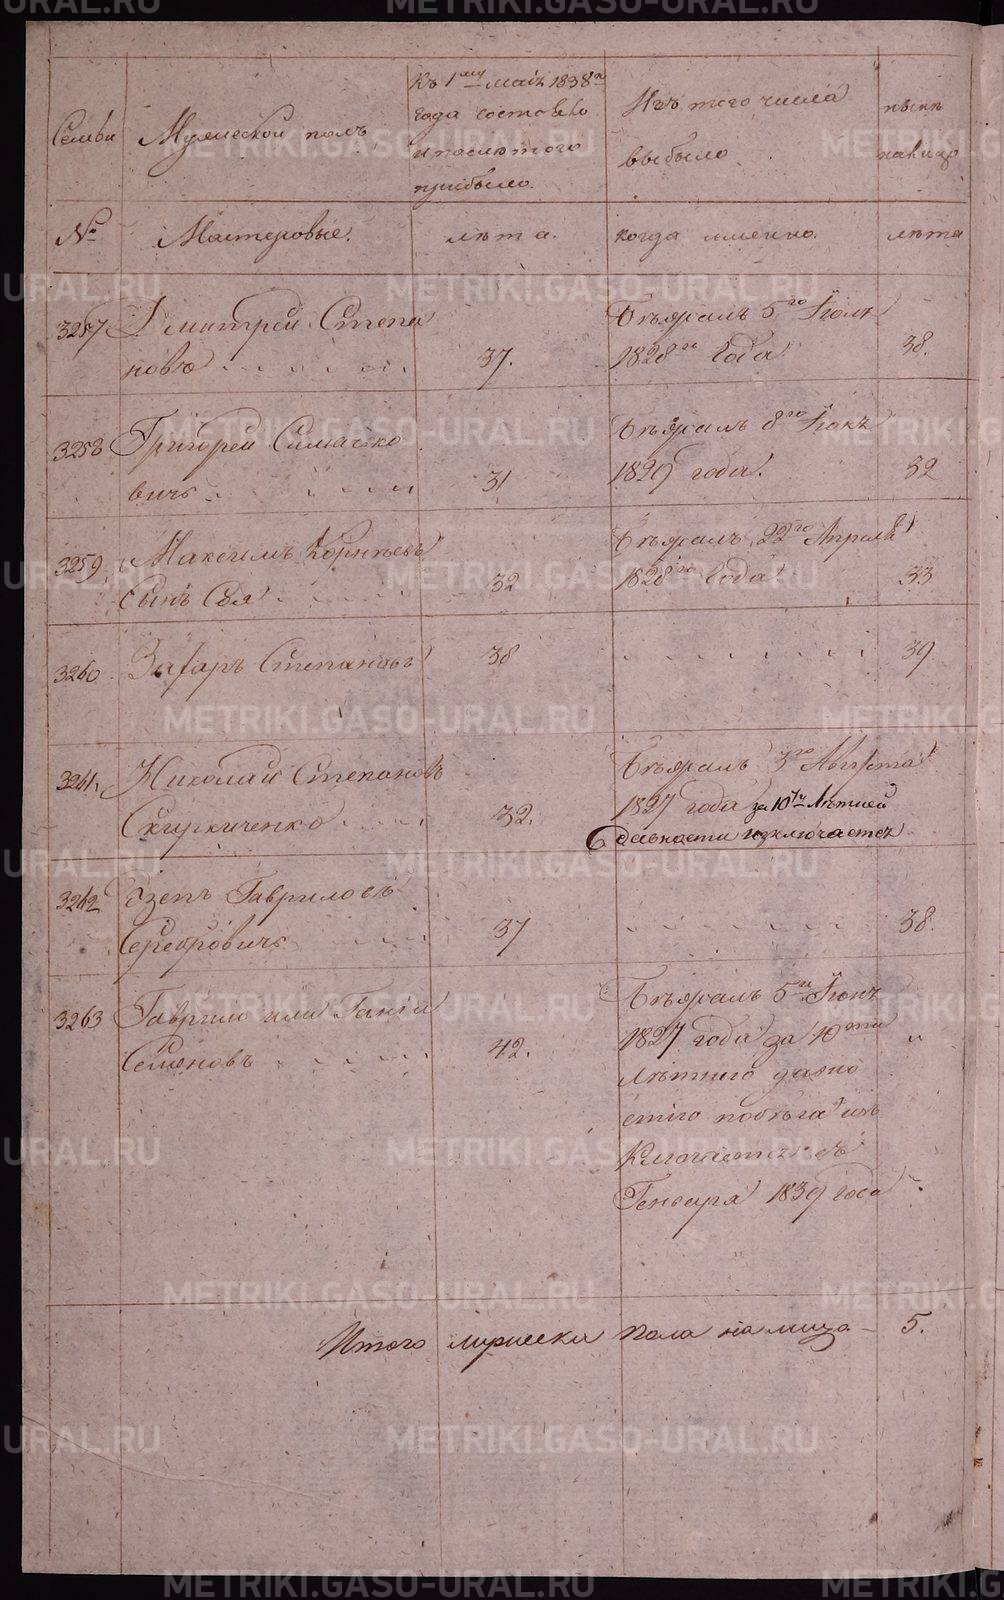 Семьи
Мужеской полъ
Къ 1му маія 1838го
года состояло
и послѣ того
прибыло.
Изъ того числа
выбыло.
нынѣ
на лицо
№
Мастеровые.
лѣта.
когда именно.
лѣта
3257 Дмитрей Степа
новъ 37.
Бѣжалъ 5го Іюля
1828го года 38.
3258 Григорей Симашко
вичь 31
Бѣжалъ 8го Іюня
1829 года. 32
3259 Максимъ Корнѣевъ
Сынъ 32
Бѣжалъ 22го Апрѣля
1828го года 33
3260 Захаръ Степановъ 38 39
3261 Николай Степановъ
32.
Бѣжалъ 3го Августа
1827 года за 10ти лѣтней
давности изключается
3262 Гаврилов
37 38.
3263 Гаврило или
Семеновъ 42.
Бѣжалъ 5го Іюня
1827 года за 10ти
лѣтнего давно
стію побѣга ис
ключается съ
Генваря 1839 года
Итого мужеска пола на лицо — 5.
METRIKI.GASO-URAL.RU